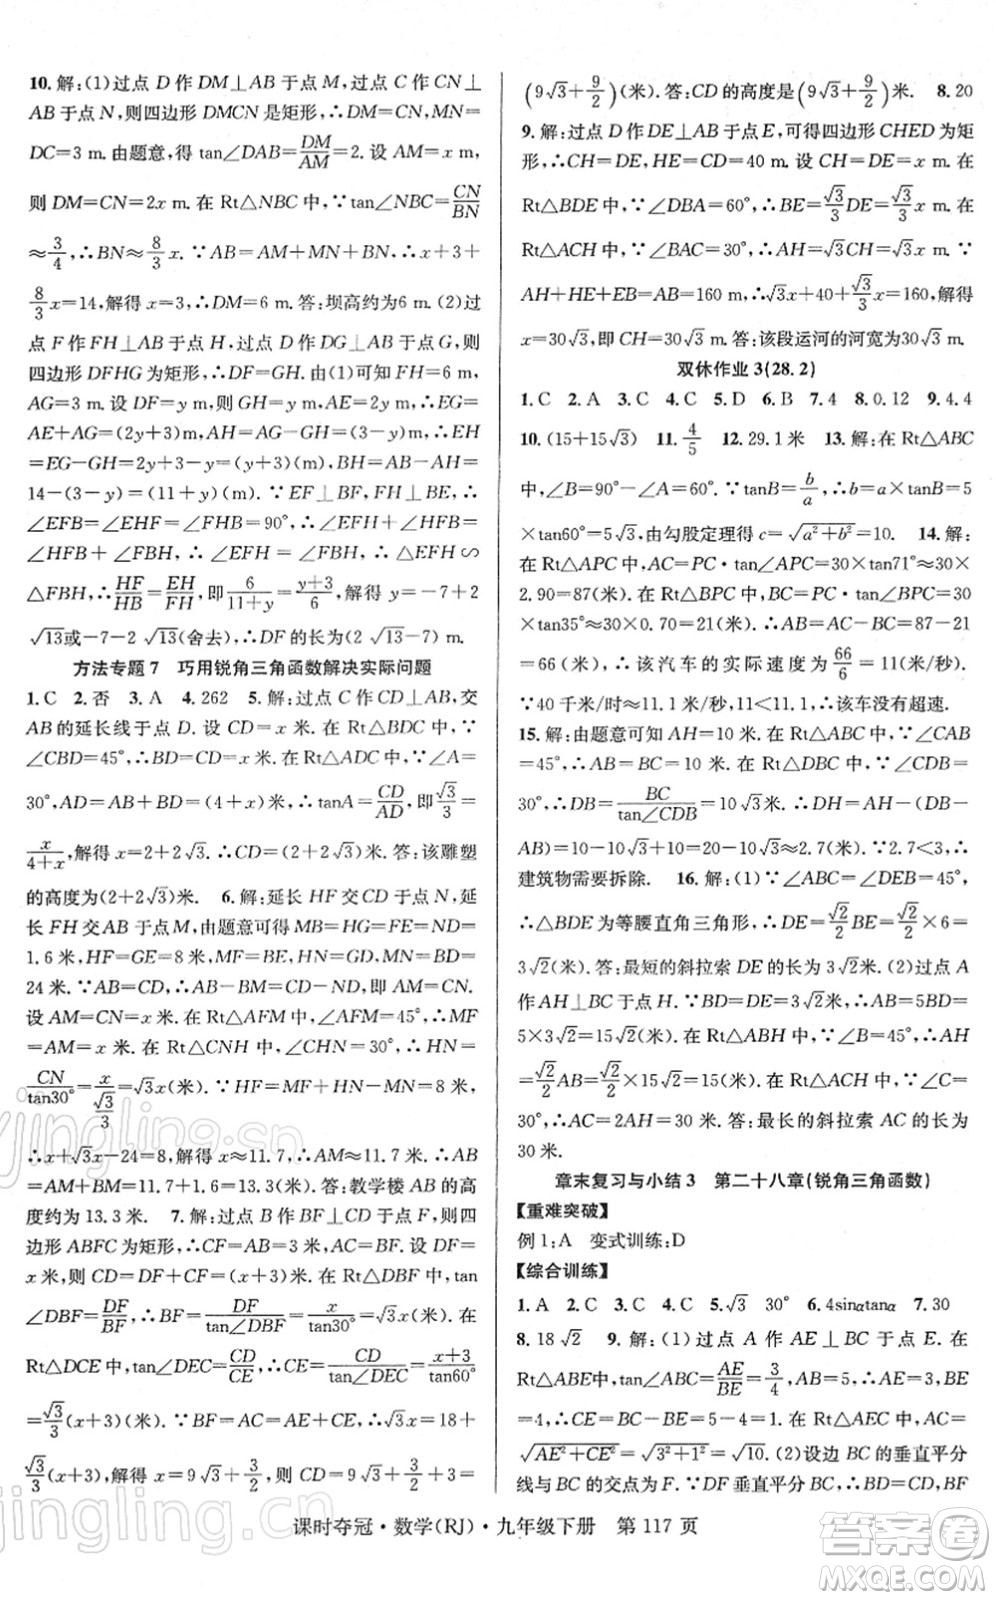 10. 解:(1)过点 D 作 DM⊥AB 于点 M,过点 C 作 CN⊥
AB 于点 N,则四边形 DMCN 是矩形,∴DM=CN,MN=
DC=3 m. 由题意,得 tan∠DAB=DM/AM=2. 设 AM=x m,
则 DM=CN=2x m. 在 Rt△NBC 中,∵tan∠NBC=CN/BN
≈3/4,∴BN≈8/3x. ∵AB=AM+MN+BN,∴x+3+
8/3x=14,解得 x=3,∴DM=6 m. 答:坝高约为 6 m. (2)过
点 F 作 FH⊥AB 于点 H,过点 D 作 DG⊥AB 于点 G,则
四边形 DFHG 为矩形,∴GH=DF,FH=DG=6 m,
AG=3 m. 设 DF=y m,则 GH=y m,AE=2y m,∴EG=
AE+AG=(2y+3)m,AH=AG+GH=(3+y)m,∴EH
=EG-GH=2y+3-y=(y+3)m,BH=AB-AH=
14-(3-y)=(11+y)(m). ∵EF⊥BF,FH⊥BE,∴
∠EFB=∠EHF=∠FHB=90°,∴∠EFH+∠HFB=
∠HFB+∠FBH,∴∠EFH=∠FBH,∴△EFH∽
△FBH,∴HF/HB=EH/FH,即6/(11+y)=(y+3)/6,解得 y=-7+2
√13或-7-2√13(舍去),∴DF 的长为(2√13-7) m.
方法专题 7 巧用锐角三角函数解决实际问题
1. C 2. 否 3. A 4. 262 5. 解:过点 C 作 CD⊥AB,交
AB 的延长线于点 D. 设 CD=x 米. 在 Rt△BDC 中,∵
∠CBD=45°,∴BD=CD=x 米. 在 Rt△ADC 中,∵∠A=
30°,AD=AB+BD=(4+x)米,∴tanA=CD/AD,即√3/3=
x/(4+x),解得 x=2+2√3,∴CD=(2+2√3)米. 答:该雕塑
的高度为(2+2√3)米. 6. 解:延长 HF 交 CD 于点 N,延
长 FH 交 AB 于点 M,由题意可得 MB=HG=FE=ND=
1.6 米,HF=GE=8 米,MF=BE,HN=GD,MN=BD=
24 米. ∵AB=CD,∴AB-BM=CD-DN,∴AM=CN.
设 AM=CN=x 米. 在 Rt△AFM 中,∠AFM=45°,∴MF
=AM=x 米. 在 Rt△CNH 中,∠CHN=30°,∴HN=
CN/tan30°=x/(√3/3)=√3x(米). ∵HF=MF+HN-MN=8 米,
∴x+√3x-24=8,解得 x≈11.7,∴AM≈11.7 米,∴AB=
AM+MB≈11.7+1.6=13.3(米). 答:教学楼 AB 的高
度约为 13.3 米. 7. 解:过点 B 作 BF⊥CD 于点 F,则四
边形 ABFC 为矩形,∴AB=CF=3 米,BF=AC. 设 DF=
x 米,则 CD=DF+CF=(x+3)米. 在 Rt△DBF 中,tan
∠DBF=DF/BF,∴BF=DF/tan∠DBF=x/tan30°=√3x(米). 在
Rt△DCE 中,tan∠DEC=CD/CE,∴CE=CD/tan∠DEC=(x+3)/tan60°
=√3/3(x+3)(米). ∵BF=AC=AE+CE,∴√3x=18+
√3/3(x+3),解得 x=9√3+3/2,则 CD=9√3+3/2+3=
(9√3+9/2)(米). 答:CD 的高度是(9√3+9/2)米. 8. 20
9. 解:过点 D 作 DE⊥AB 于点 E,可得四边形 CHED 为矩
形,∴CH=DE,HE=CD=40 m. 设 CH=DE=x m. 在
Rt△BDE 中,∵∠DBA=60°,∴BE=√3/3DE=√3/3x m. 在
Rt△ACH 中,∵∠BAC=30°,∴AH=√3CH=√3x m. ∵
AH+HE+EB=AB=160 m,∴√3x+40+√3/3x=160,解得
x=30√3,∴CH=30√3 m. 答:该段运河的河宽为30√3 m.
双休作业 3(28.2)
1. C 2. A 3. C 4. C 5. D 6. B 7. 4 8. 0.12 9. 4.4
10. (15+15√3) 11. 4/5 12. 29.1 米 13. 解:在 Rt△ABC
中,∠B=90°-∠A=60°. ∵tanB=b/a,∴b=a×tanB=5
×tan60°=5√3,由勾股定理得 c=√(a²+b²)=10. 14. 解:
在 Rt△APC 中,AC=PC·tan∠APC=30×tan71°≈30×
2.90=87(米). 在 Rt△BPC 中,BC=PC·tan∠BPC=30
×tan35°≈30×0.70=21(米),∴AB=AC-BC=87-21
=66(米),∴该汽车的实际速度为66/6=11(米/秒).
∵40 千米/时≈11.1 米/秒,11<11.1,∴该车没有超速.
15. 解:由题意可知 AH=10 米. 在 Rt△ABC 中,∵∠CAB
=45°,∴AB=BC=10 米. 在 Rt△DBC 中,∵∠CDB=
30°,∴DB=BC/tan∠CDB=10√3米,∴DH=AH-(DB-
AB)=10-10√3+10=20-10√3≈2.7(米). ∵2.7<3,∴
建筑物需要拆除. 16. 解:(1)∵∠ABC=∠DEB=45°,
∴△BDE为等腰直角三角形,∴DE=√2/2BE=√2/2×6=
3√2(米). 答:最短的斜拉索 DE 的长为 3√2米. (2)过点 A
作 AH⊥BC 于点 H. ∵BD=DE=3√2米,∴AB=5BD=
5×3√2=15√2(米). 在 Rt△ABH 中,∵∠B=45°,∴AH
=√2/2AB=√2/2×15√2=15(米). 在 Rt△ACH 中,∵∠C=
30°,∴AC=2AH=30 米. 答:最长的斜拉索 AC 的长为
30 米.
章末复习与小结 3 第二十八章(锐角三角函数)
【重难突破】
例 1:A 变式训练:D
【综合训练】
1. A 2. C 3. C 4. C 5. √3 30° 6. 4sinαtanα 7. 30
8. 18√2 9. 解:(1)过点 A 作 AE⊥BC 于点 E. 在
Rt△ABE 中,tan∠ABC=AE/BE=3/4,∴AB=5,∴AE=3,BE
=4,∴CE=BC-BE=5-4=1. 在 Rt△AEC 中,AC=
√(AE²+CE²)=√(3²+1²)=√10. (2)设边 BC 的垂直平分
线与 BC 的交点为 F. ∵DF 垂直平分 BC,∴BD=CD,BF
课时夺冠·数学(RJ)·九年级下册 第 117 页
yjingling.cn
yjingling.cn
答案圈
MXQE.COM